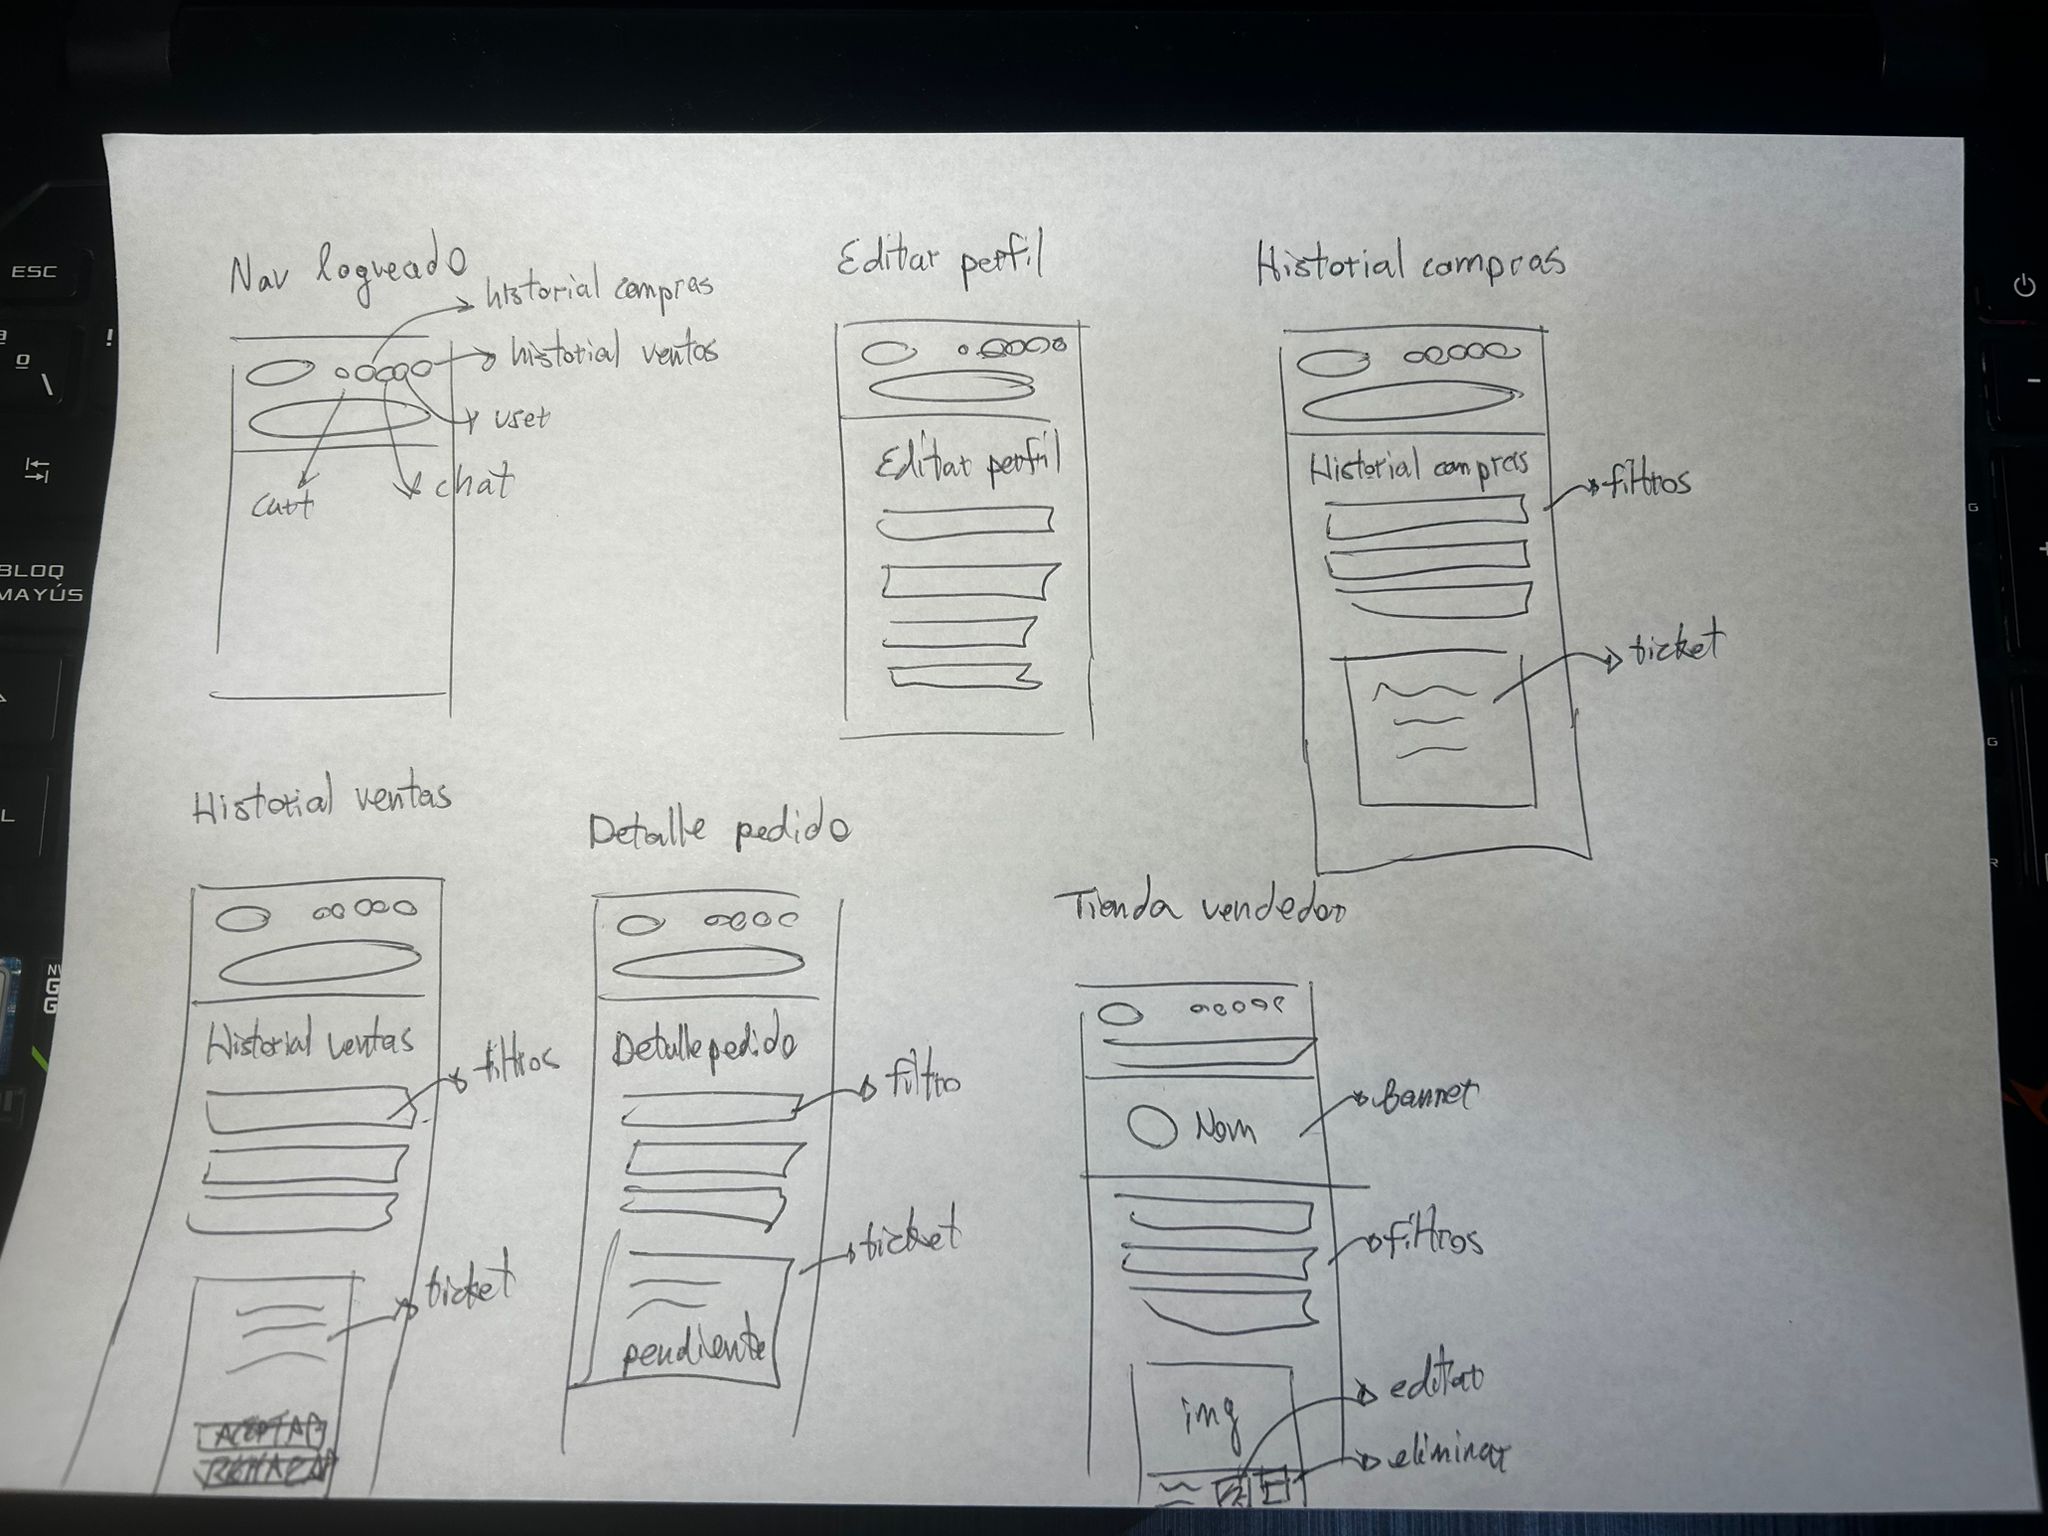 Nav logueado
historial compras
historial ventas
user
chat
cart
Editar perfil
Editar perfil
Historial compras
Historial compras
filtros
ticket
Historial ventas
Historial ventas
filtros
ticket
ACEPTAR
RECHAZAR
Detalle pedido
Detalle pedido
filtro
ticket
pendiente
Tienda vendedor
Nom
banner
filtros
img
editar
eliminar
ESC
!
º
\
BLOQ
MAYÚS
L
G
G
R